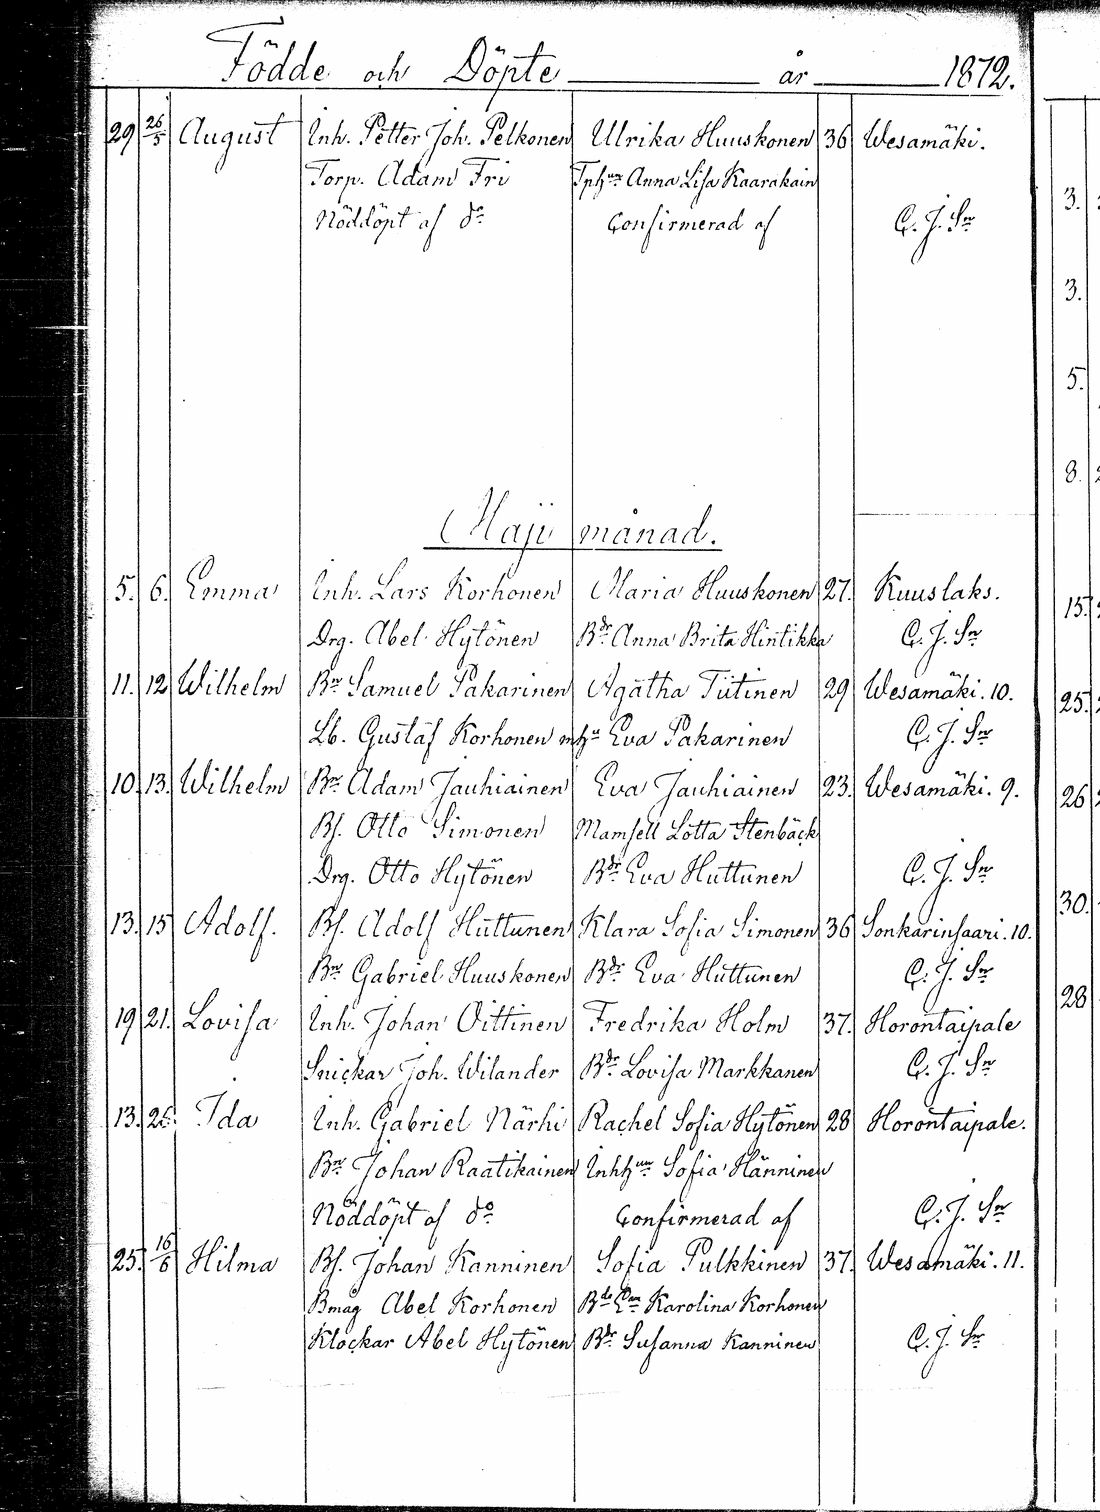 Födde och Döpte år 1872.
29 26/5 August Inh. Petter Joh. Pelkonen Ulrika Huuskonen 36 Wesamäki.
Torp. Adam Fri Tphun Anna Lisa Kaarakain
Nöddöpt af do Confirmerad af C. J. Sn
Maji månad.
5. 6. Emma Inh. Lars Korhonen Maria Huuskonen 27. Kuuslaks.
Drg. Abel Hytönen Bdr. Anna Brita Hintikka C. J. Sn
11. 12 Wilhelm Bn Samuel Pakarinen Agatha Tiitinen 29 Wesamäki. 10.
Lb. Gustaf Korhonen mhu Eva Pakarinen C. J. Sn
10. 13. Wilhelm Bn Adam Jauhiainen Eva Jauhiainen 23. Wesamäki. 9.
Bs. Otto Simonen Mamsell Lotta Stenbäck
Drg. Otto Hytönen Bdr Eva Huttunen C. J. Sn
13. 15 Adolf. Bs. Adolf Huttunen Klara Sofia Simonen 36 Sonkarinsaari. 10.
Bn Gabriel Huuskonen Bdr Eva Huttunen C. J. Sn
19 21. Lovisa Inh. Johan Oittinen Fredrika Holm 37. Horontaipale
Snickar Joh. Wilander Bdr Lovisa Markkanen C. J. Sn
13. 26. Ida Inh. Gabriel Närhi Rachel Sofia Hytönen 28 Horontaipale.
Bn Johan Raatikainen Inhhun Sofia Hänninen
Nöddöpt af do Confirmerad af C. J. Sn
25. 16/6 Hilma Bs. Johan Kanninen Sofia Pulkkinen 37. Wesamäki. 11.
Bmåg Abel Korhonen Karolina Korhonen
Klockar Abel Hytönen Bdr. Susanna Kanninen C. J. Sn
3.
3.
5.
8.
15.
25.
26
30.
28